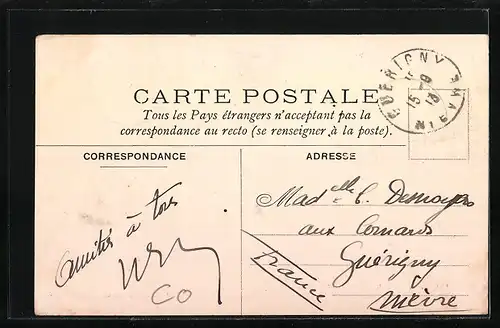 GUERIGNY
15-9
NIEVRE
CARTE POSTALE
Tous les Pays étrangers n'acceptant pas la
correspondance au recto (se renseigner à la poste).
CORRESPONDANCE
ADRESSE
amitiés à tous
CO
Madelle C. Desmoyers
aux Comards
Guérigny
Nièvre
France